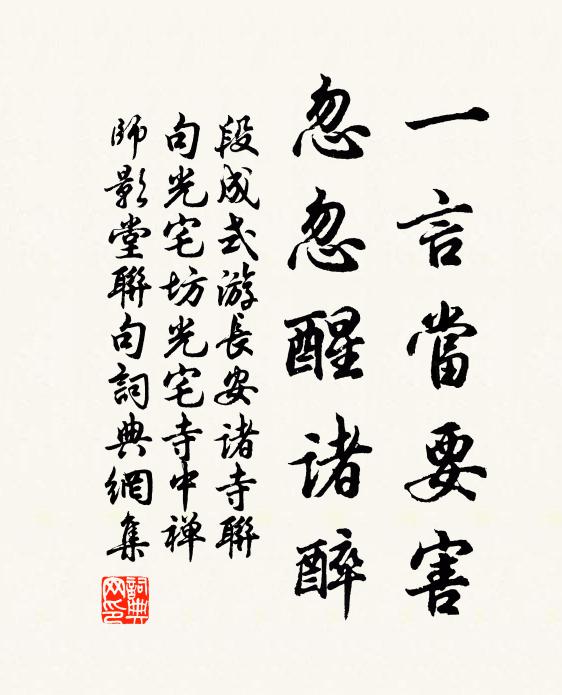 一言當要害
忽忽醒諸醉
段成式游長安諸寺聯
句光宅坊光宅寺中禅
師影堂聯句詞典網集
詞典
网印